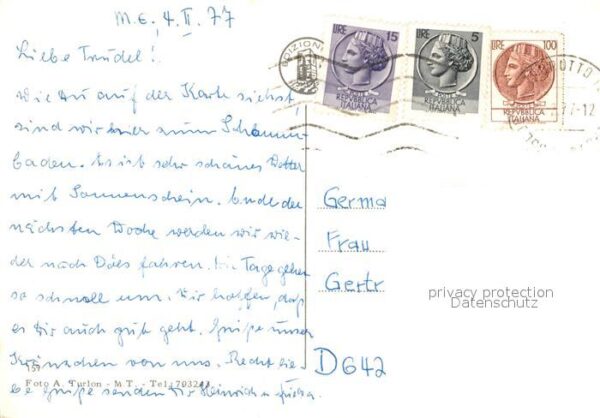 M.E., 4.II.77
Liebe Trudel!
Wie Du auf der Karte siehst
sind wir hier zum Schlamm-
baden. Es ist sehr schönes Wetter
mit Sonnenschein. Ende der
nächsten Woche werden wir wie-
der nach fahren. Die Tage gehen
so schnell um. Wir hoffen, daß
es Dir auch gut geht. Grüße unser
Kränzchen von uns. Recht lie-
be Grüße senden Dir Heinrich u.
157
Foto A. Turlon - M.T. - Tel.
EDIZIONI
LIRE 15
REPUBBLICA ITALIANA
LIRE 5
REPUBBLICA ITALIANA
LIRE 100
REPUBBLICA ITALIANA
Germa
Frau
Gertr
D 642
privacy protection
Datenschutz